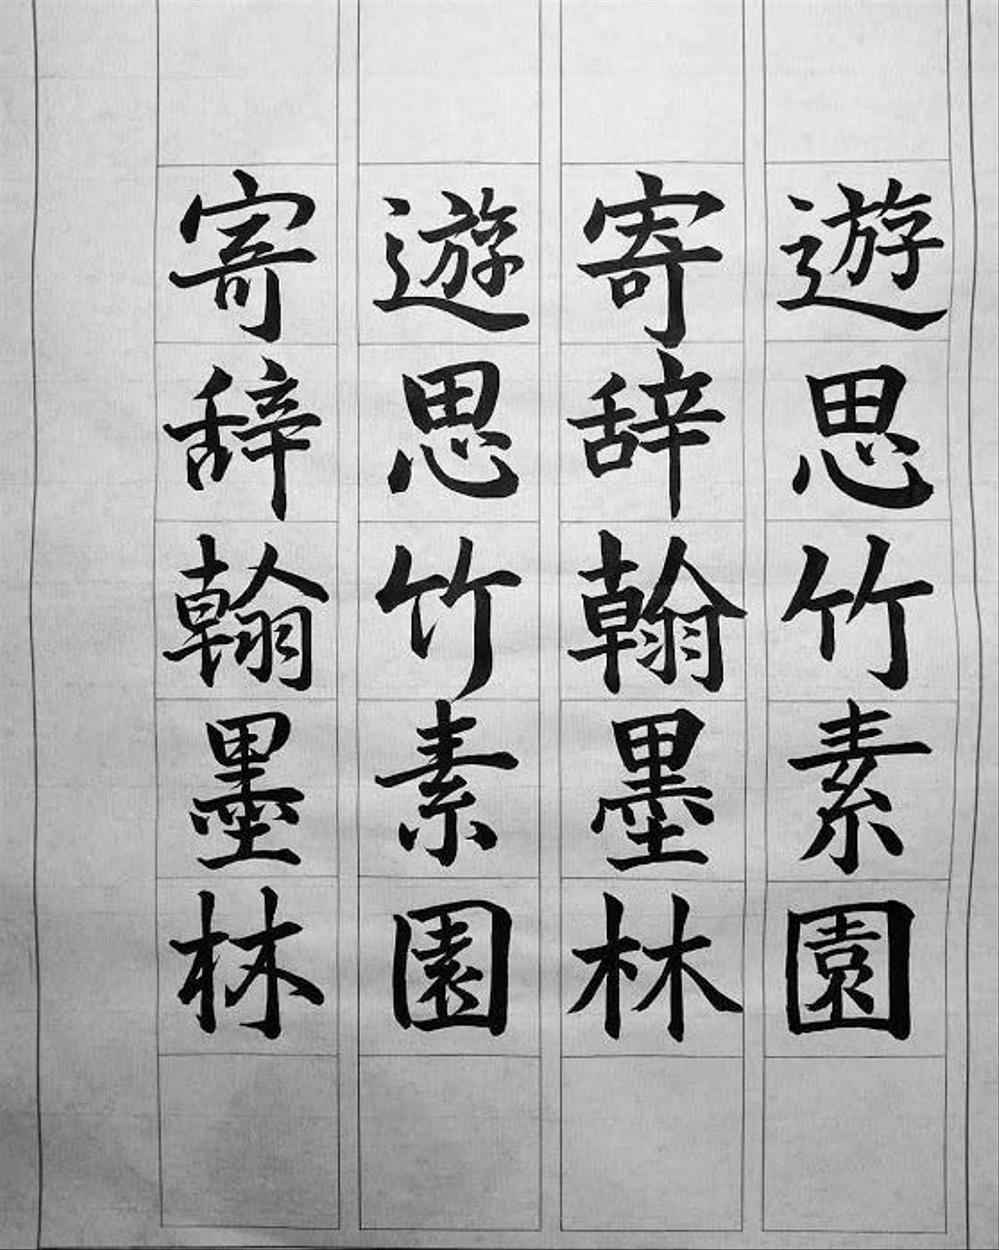 遊思竹素園
寄辞翰墨林
遊思竹素園
寄辞翰墨林